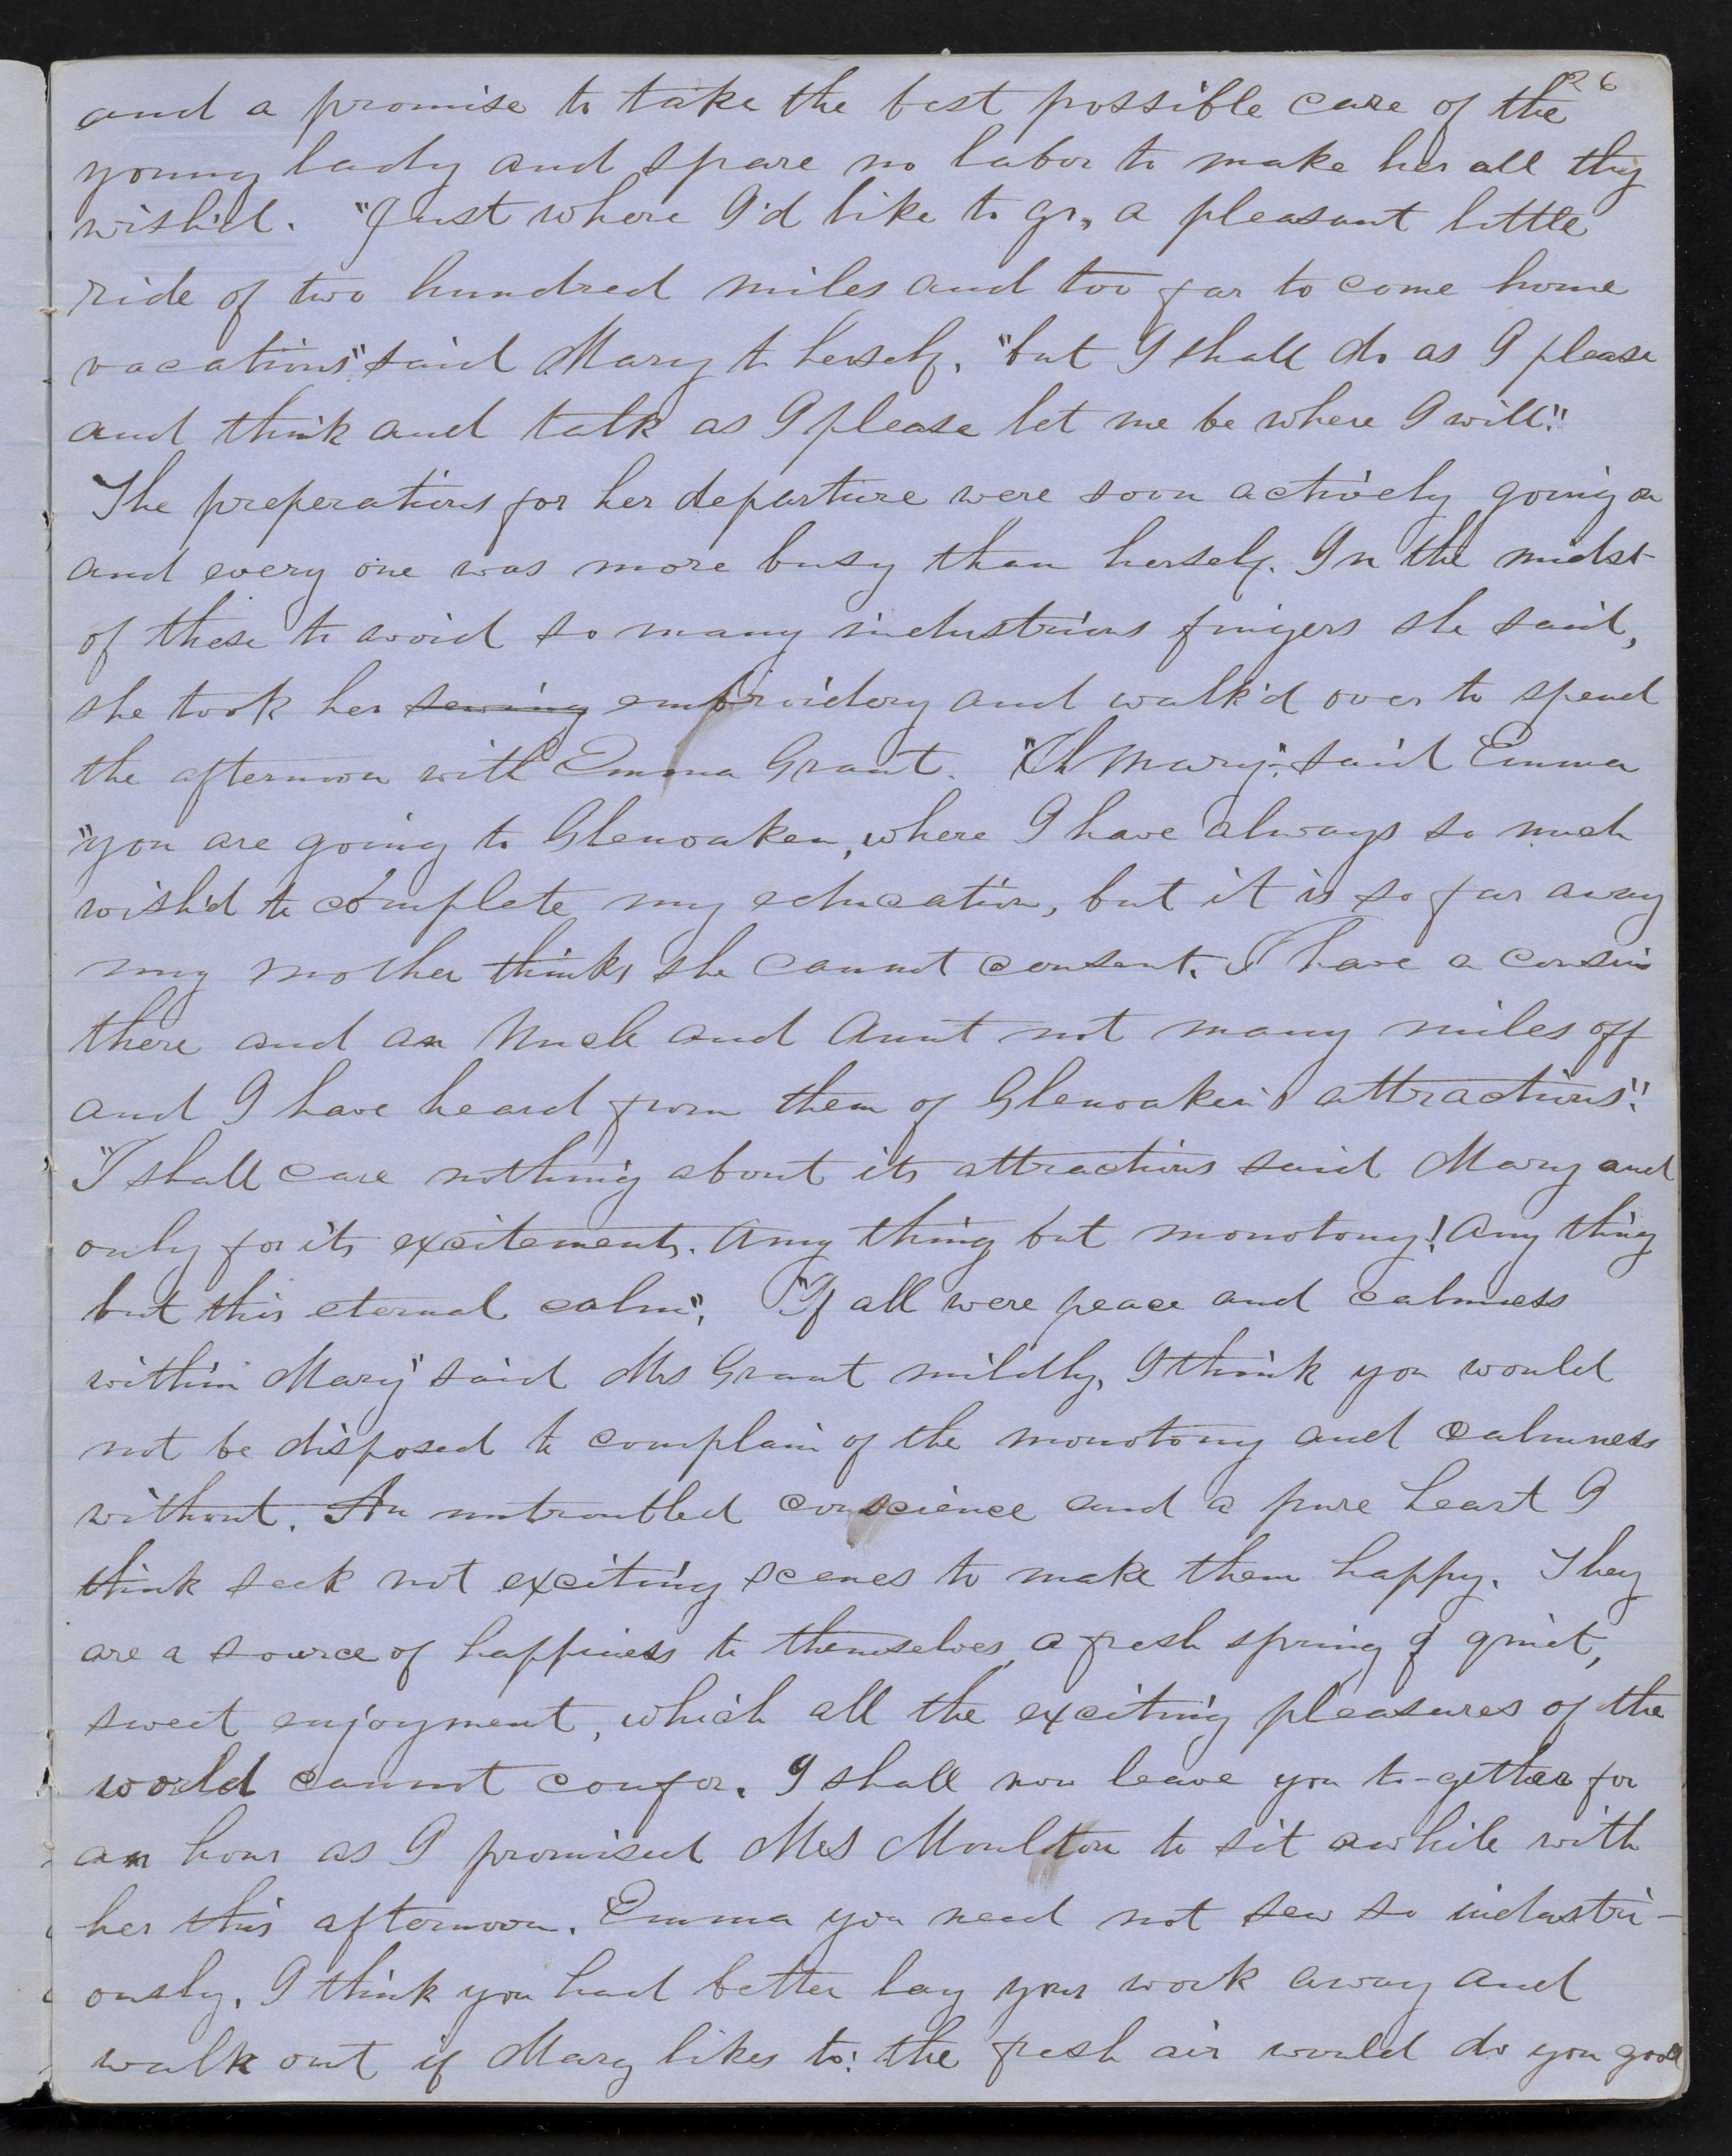 26
and a promise to take the best possible care of the
young lady and spare no labor to make her all they
wish'd. "Just where I'd like to go, a pleasant little
ride of two hundred miles and too far to come home
vacations" said Mary to herself, "but I shall do as I please
and think and talk as I please let me be where I will."
The preperations for her departure were soon actively going on
and every one was more busy than herself. In the midst
of these to avoid so many industrious fingers she said,
she took her sewing embroidery and walk'd over to spend
the afternoon with Emma Grant. "Oh Mary," said Emma
"you are going to Glenoaken, where I have always so much
wish'd to complete my education, but it is so far away
my mother thinks she cannot consent. I have a cousin
there and an Uncle and Aunt not many miles off
and I have heard from them of Glenoaken's attractions."
"I shall care nothing about its attractions said Mary and
only for its excitements. Any thing but monotony! Any thing
but this eternal calm." "If all were peace and calmness
within Mary" said Mrs Grant mildly, I think you would
not be disposed to complain of the monotony and calmness
without. An untroubled conscience and a pure heart I
think seek not exciting scenes to make them happy. They
are a source of happiness to themselves, a fresh spring of quiet,
sweet enjoyment, which all the exciting pleasures of the
world cannot confer. I shall now leave you to-gether for
an hour as I promised Mrs Moulton to sit awhile with
her this afternoon. Emma you need not sew so industri-
ously, I think you had better lay your work away and
walk out if Mary likes to: the fresh air would do you good